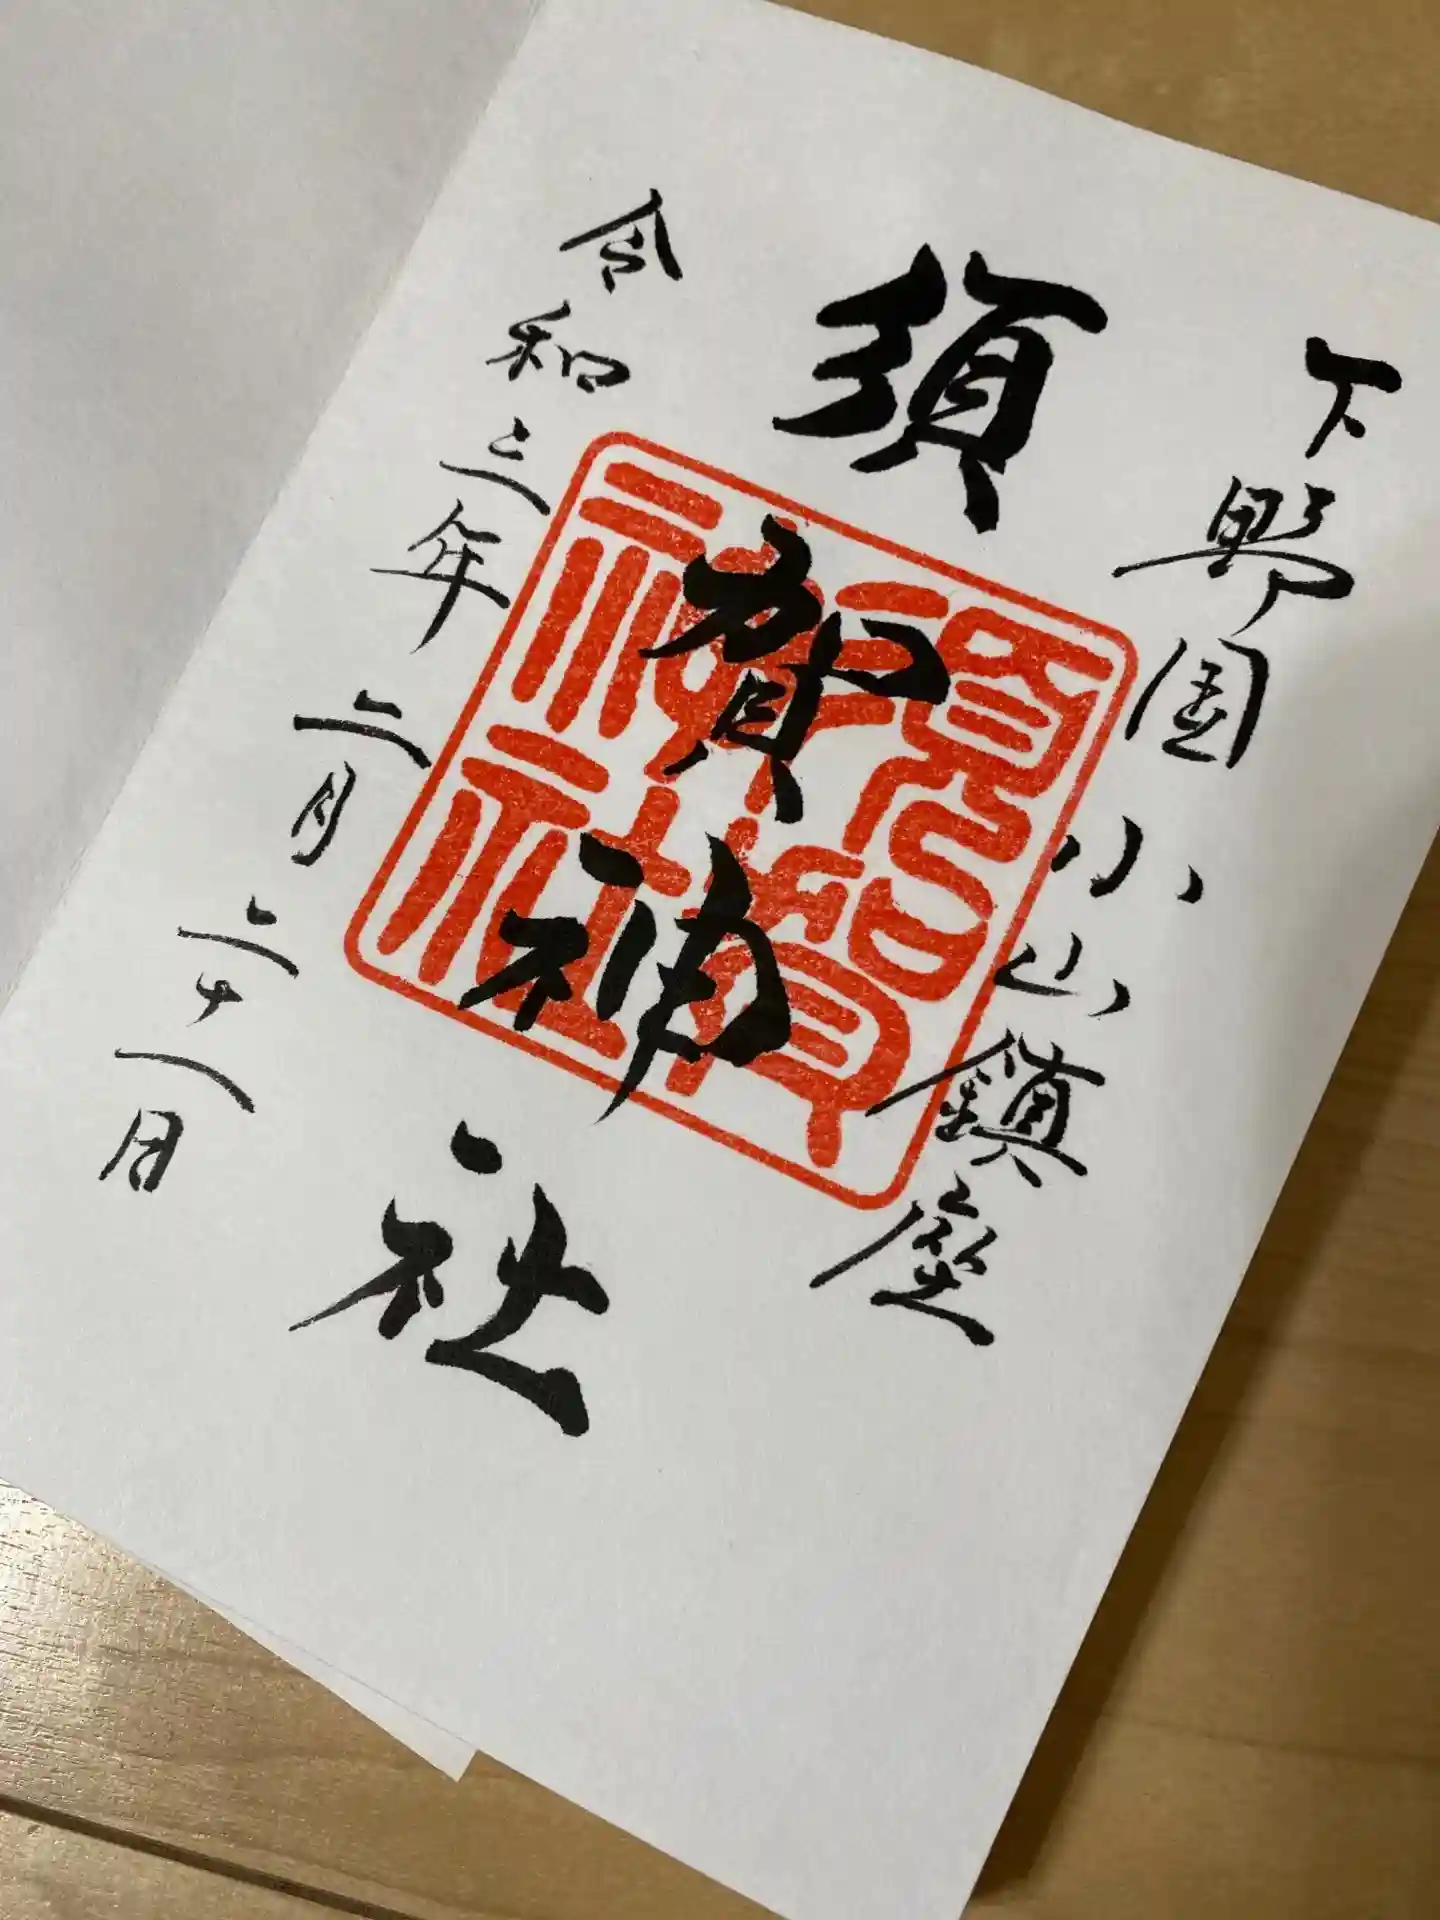 下野国小山鎮座
須賀神社
須賀神社
令和三年二月二十八日